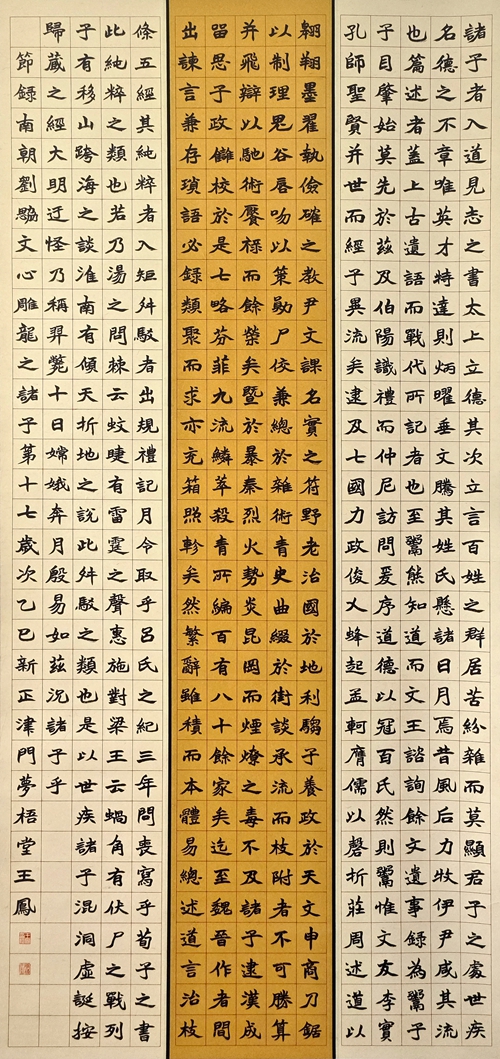 諸子者入道見志之書太上立德其次立言百姓之群居苦紛雜而莫顯君子之處世疾
名德之不章唯英才特達則炳曜垂文騰其姓氏懸諸日月焉昔風后力牧伊尹咸其流
也篇述者蓋上古遺語而戰代所記者也至鬻熊知道而文王諮詢餘文遺事録為鬻子
子目肇始莫先於茲及伯陽識禮而仲尼訪問爰序道德以冠百氏然則鬻惟文友李實
孔師聖賢并世而經子異流矣逮及七國力政俊乂蜂起孟軻膺儒以磬折莊周述道以
翱翔墨翟執儉確之教尹文課名實之符野老治國於地利騶子養政於天文申商刀鋸
以制理鬼谷唇吻以策勛尸佼兼總於雜術青史曲綴於街談承流而枝附者不可勝算
并飛辯以馳術饜祿而餘榮矣暨於暴秦烈火勢炎昆岡而煙燎之毒不及諸子逮漢成
留思子政讎校於是七略芬菲九流鱗萃殺青所編百有八十餘家矣迄至魏晉作者間
出諫言兼存瑣語必録類聚而求亦充箱照軫矣然繁辭雖積而本體易總述道言治枝
條五經其純粹者入矩舛駁者出規禮記月令取乎呂氏之紀三年問喪寫乎荀子之書
此純粹之類也若乃湯之問棘云蚊睫有雷霆之聲惠施對梁王云蝸角有伏尸之戰列
子有移山跨海之談淮南有傾天折地之說此舛駁之類也是以世疾諸子混洞虛誕按
歸藏之經大明迂怪乃稱羿斃十日嫦娥奔月殷易如茲況諸子乎
節録南朝劉勰文心雕龍之諸子第十七歲次乙巳新正津門夢梧堂王鳳